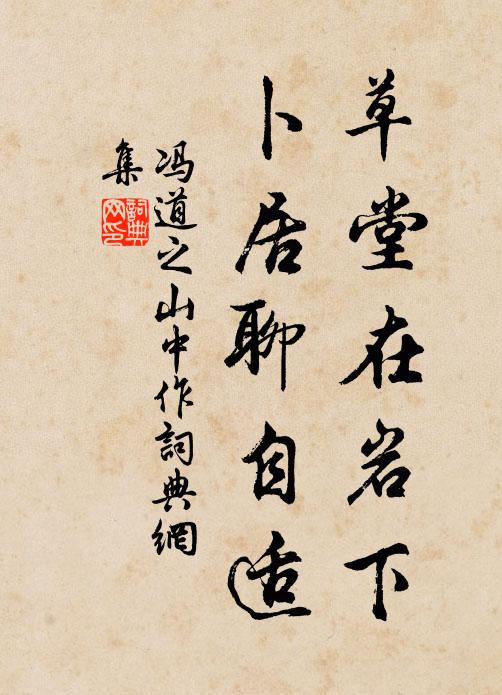 草堂在岩下
卜居聊自适
冯道之山中作詞典網
集
詞典
网印